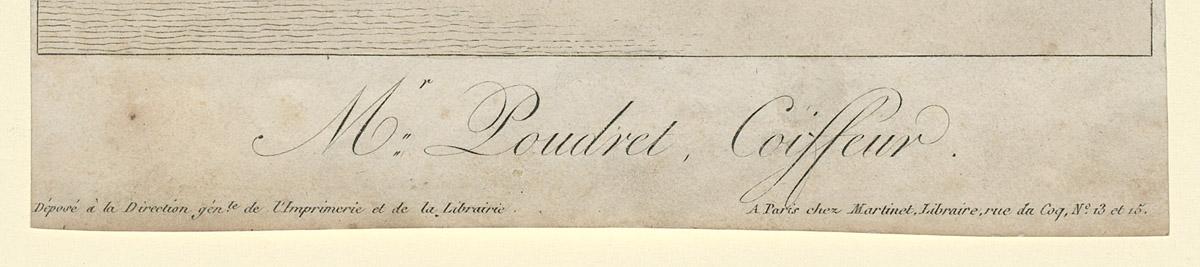 Mr. Poudret, Coïffeur.
Déposé à la Direction génle de l'Imprimerie et de la Librairie.
A Paris chez Martinet, Libraire, rue du Coq, No 13 et 15.